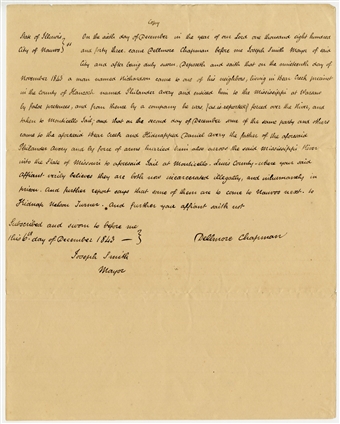 Copy
State of Illinois } ss On the sixth day of December in the year of our Lord one thousand eight hundred
City of Nauvoo } and forty three, came Dellmore Chapman before me Joseph Smith Mayor of said
City and after being duly sworn. Deposeth and saith that on the nineteenth day of
November 1843 a man named Richardson came to one of his neighbors, living in Bear Creek precinct
in the County of Hancock named Philander Avery and enticed him to the Mississippi at Warsaw
by false pretences, and from thence by a company he was (as is reported) forced over the River, and
taken to Monticello Jail; and that on the second day of December some of the same party and others
came to the aforesaid Bear Creek and Kidnapped Daniel Avery the father of the aforesaid
Philander Avery and by force of arms hurried him also across the said Mississippi River
into the State of Missouri to aforesaid Jail at Monticello. Lewis County. where your said
affiant verily believes they are both now incarcerated illegally, and inhumanely in
prison. And further report says that some of them are to come to Nauvoo next. to
Kidnap Nelson Turner. And further your affiant saith not
Subscribed and sworn to before me }
this 6th day of December 1843 — } Dellmore Chapman
Joseph Smith
Mayor